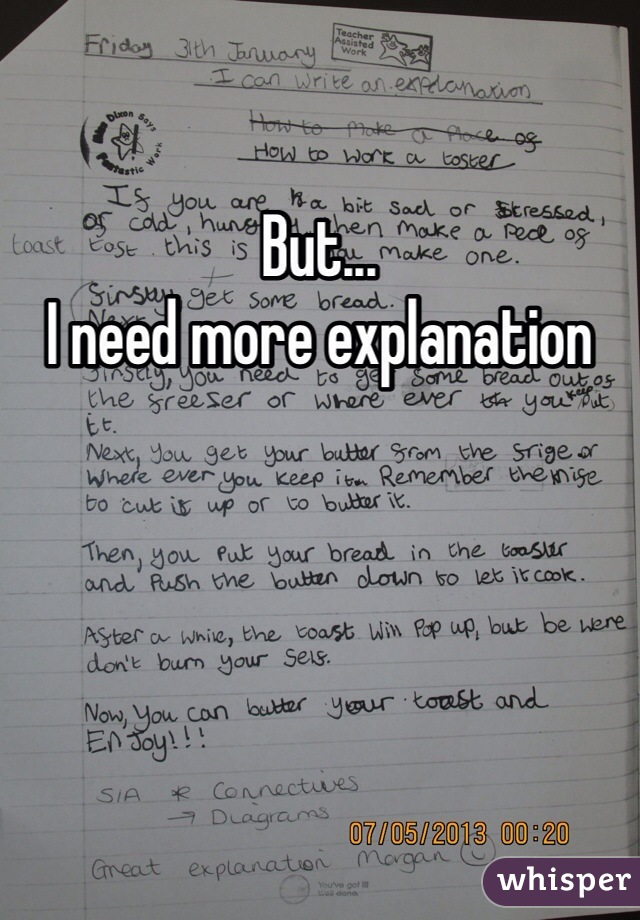 Friday 31th January
Teacher Assisted Work
I can write an explanation
How to make a of
Dixon Says
Fantastic Work
How to work a toster
If you are a bit sad or stressed,
or cold, then make a of
toast tost. this is make one.
But...
get some bread.
Next
I need more explanation
you need to get some bread out of
the freeser or where ever you keep put
it.
Next, you get your butter from the frige or
where ever you keep it. Remember the nife
to cut it up or to butter it.
Then, you put your bread in the toaster
and push the button down to let it cook.
After a while, the toast will pop up, but be were
don't burn your self.
Now, you can butter your toast and
EnJoy!!!
S/A * Connectives
→ Diagrams
07/05/2013 00:20
Great explanation Morgan
You've got it!
Well done.
whisper